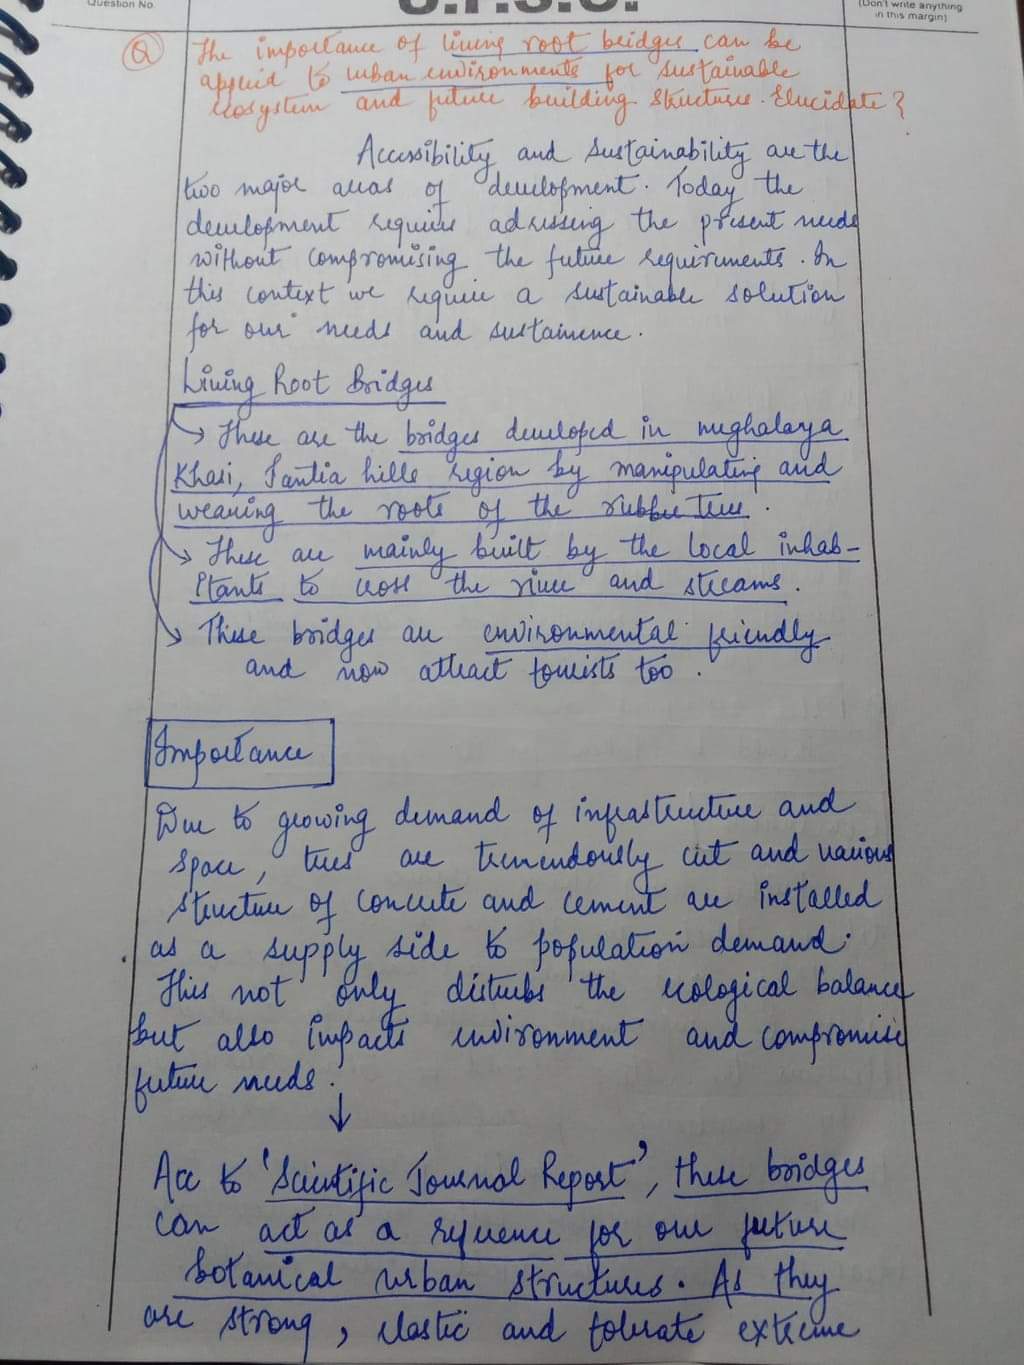 Question No.
U.P.S.C.
(Don't write anything
in this margin)
Q The importance of living root bridges can be
applied to urban environments for sustainable
ecosystem and future building structures. Elucidate?
Accessibility and sustainability are the
two major areas of development. Today the
development require adressing the present needs
without compromising the future requirements. In
this context we require a sustainable solution
for our needs and sustainence.
Living Root Bridges
→ These are the bridges developed in meghalaya
Khasi, Jantia hills region by manipulating and
weaving the roots of the rubber tree.
→ These are mainly built by the local inhab-
itants to cross the river and streams.
→ These bridges are environmental friendly
and now attract tourists too.
Importance
Due to growing demand of infrastructure and
space, trees are tremendously cut and various
structure of concrete and cement are installed
as a supply side to population demand.
This not only disturbs the ecological balance
but also impacts environment and compromise
future needs.
↓
Acc to 'Scientific Journal Report', these bridges
can act as a reference for our future
botanical urban structures. As they
are strong, elastic and tolerate extreme